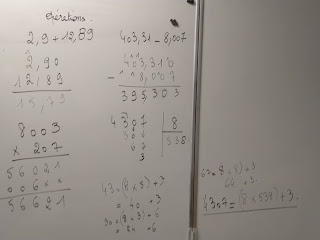 Opérations.
2,9 + 12,89
2,90
12,89
15,79
8003
× 207
56021
006××
56621
403,31 - 8,007
403,310
- 8,007
395,303
4307 | 8
30 538
67
3
43 = (8 × 5) + 3
= 40 + 3
30 = (8 × 3) + 6
= 24 + 6
64 + 3.
4307 = (8 × 538) + 3.